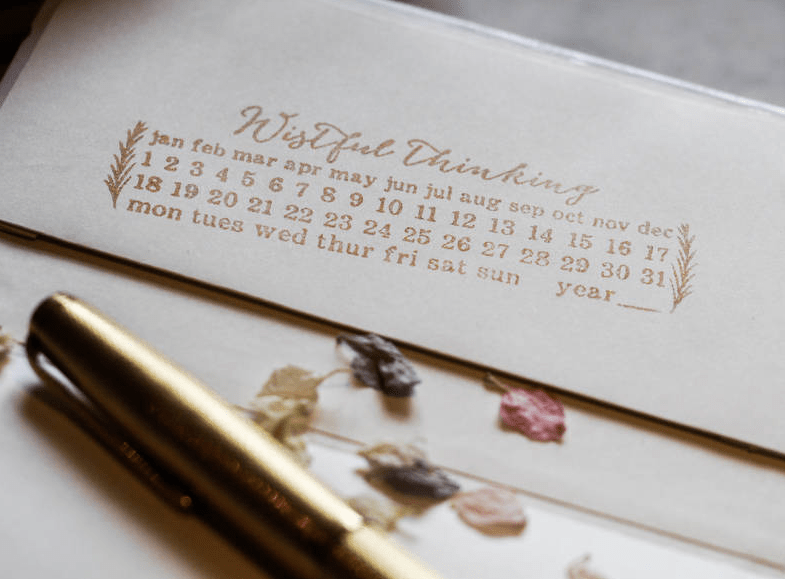 Wistful Thinking
jan feb mar apr may jun jul aug sep oct nov dec
1 2 3 4 5 6 7 8 9 10 11 12 13 14 15 16 17
18 19 20 21 22 23 24 25 26 27 28 29 30 31
mon tues wed thur fri sat sun year__